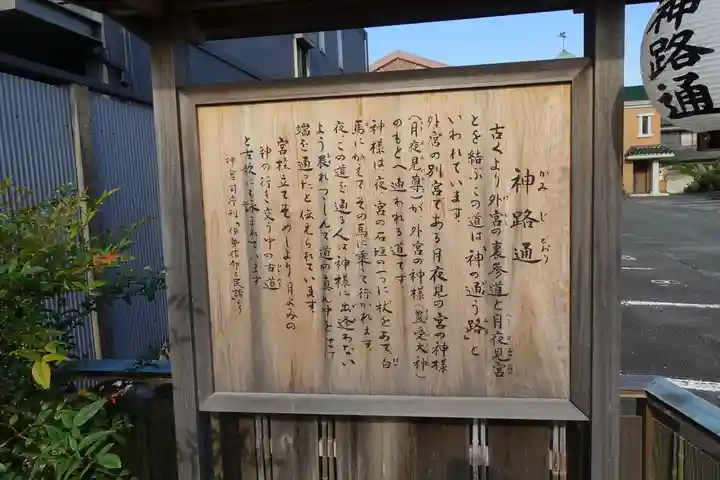 神路通
かみじどおり
古くより外宮の裏参道と月夜見宮
とを結ぶこの道は「神の通う路」と
いわれています。
外宮の別宮である月夜見の宮の神様
(月夜見尊)が、外宮の神様(豊受大神)
のもとへ通われる道です。
神様は夜、宮の石垣の一つに杖をあて白
馬にかえてその馬に乗って行かれます。
夜、この道を通る人は神様に出逢わない
よう畏れつつしんで道の真ん中をさけ
端を通ったと伝えられています。
宮柱立てそめしより月よみの
神の行き交う中の古道
と古歌にも詠まれています
神宮司庁刊「伊勢信仰と民話」より
神路通